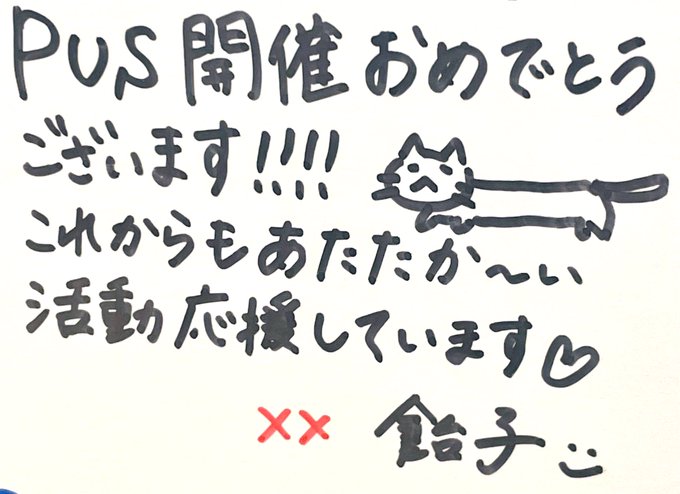 PUS 開催おめでとう
ございます!!!!
これからもあたたか〜い
活動応援しています♡
×× 飴子